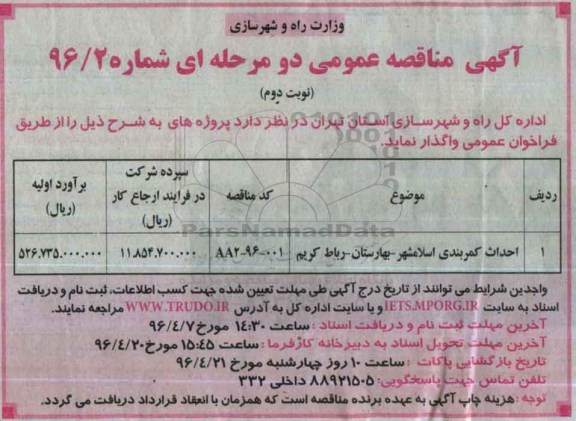 وزارت راه و شهرسازی
آگهی مناقصه عمومی دو مرحله ای شماره ۹۶/۲
(نوبت دوم)
اداره کل راه و شهرسازی استان تهران در نظر دارد پروژه های به شرح ذیل را از طریق
فراخوان عمومی واگذار نماید.
ردیف موضوع کد مناقصه سپرده شرکت در فرایند ارجاع کار (ریال) برآورد اولیه (ریال)
۱ احداث کمربندی اسلامشهر-بهارستان-رباط کریم AA۲-۹۶-۰۰۱ ۱۱.۸۵۴.۷۰۰.۰۰۰ ۵۲۶.۷۳۵.۰۰۰.۰۰۰
ParsNamadData
واجدین شرایط می توانند از تاریخ درج آگهی طی مهلت تعیین شده جهت کسب اطلاعات، ثبت نام و دریافت
اسناد به سایت IETS.MPORG.IR و یا سایت اداره کل به آدرس WWW.TRUDO.IR مراجعه نمایند.
آخرین مهلت ثبت نام و دریافت اسناد : ساعت ۱۴:۳۰ مورخ ۹۶/۴/۷
آخرین مهلت تحویل اسناد به دبیرخانه کارفرما : ساعت ۱۵:۴۵ مورخ ۹۶/۴/۲۰
تاریخ بازگشایی پاکات : ساعت ۱۰ روز چهارشنبه مورخ ۹۶/۴/۲۱
تلفن تماس جهت پاسخگویی: ۸۸۹۲۱۵۰۵ داخلی ۳۳۲
توجه : هزینه چاپ آگهی به عهده برنده مناقصه است که همزمان با انعقاد قرارداد دریافت می گردد.